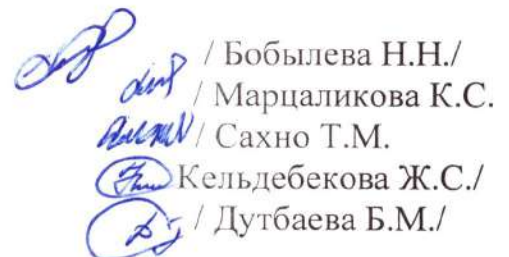 / Бобылева Н.Н./
/ Марцаликова К.С.
/ Сахно Т.М.
Кельдебекова Ж.С./
/ Дутбаева Б.М./